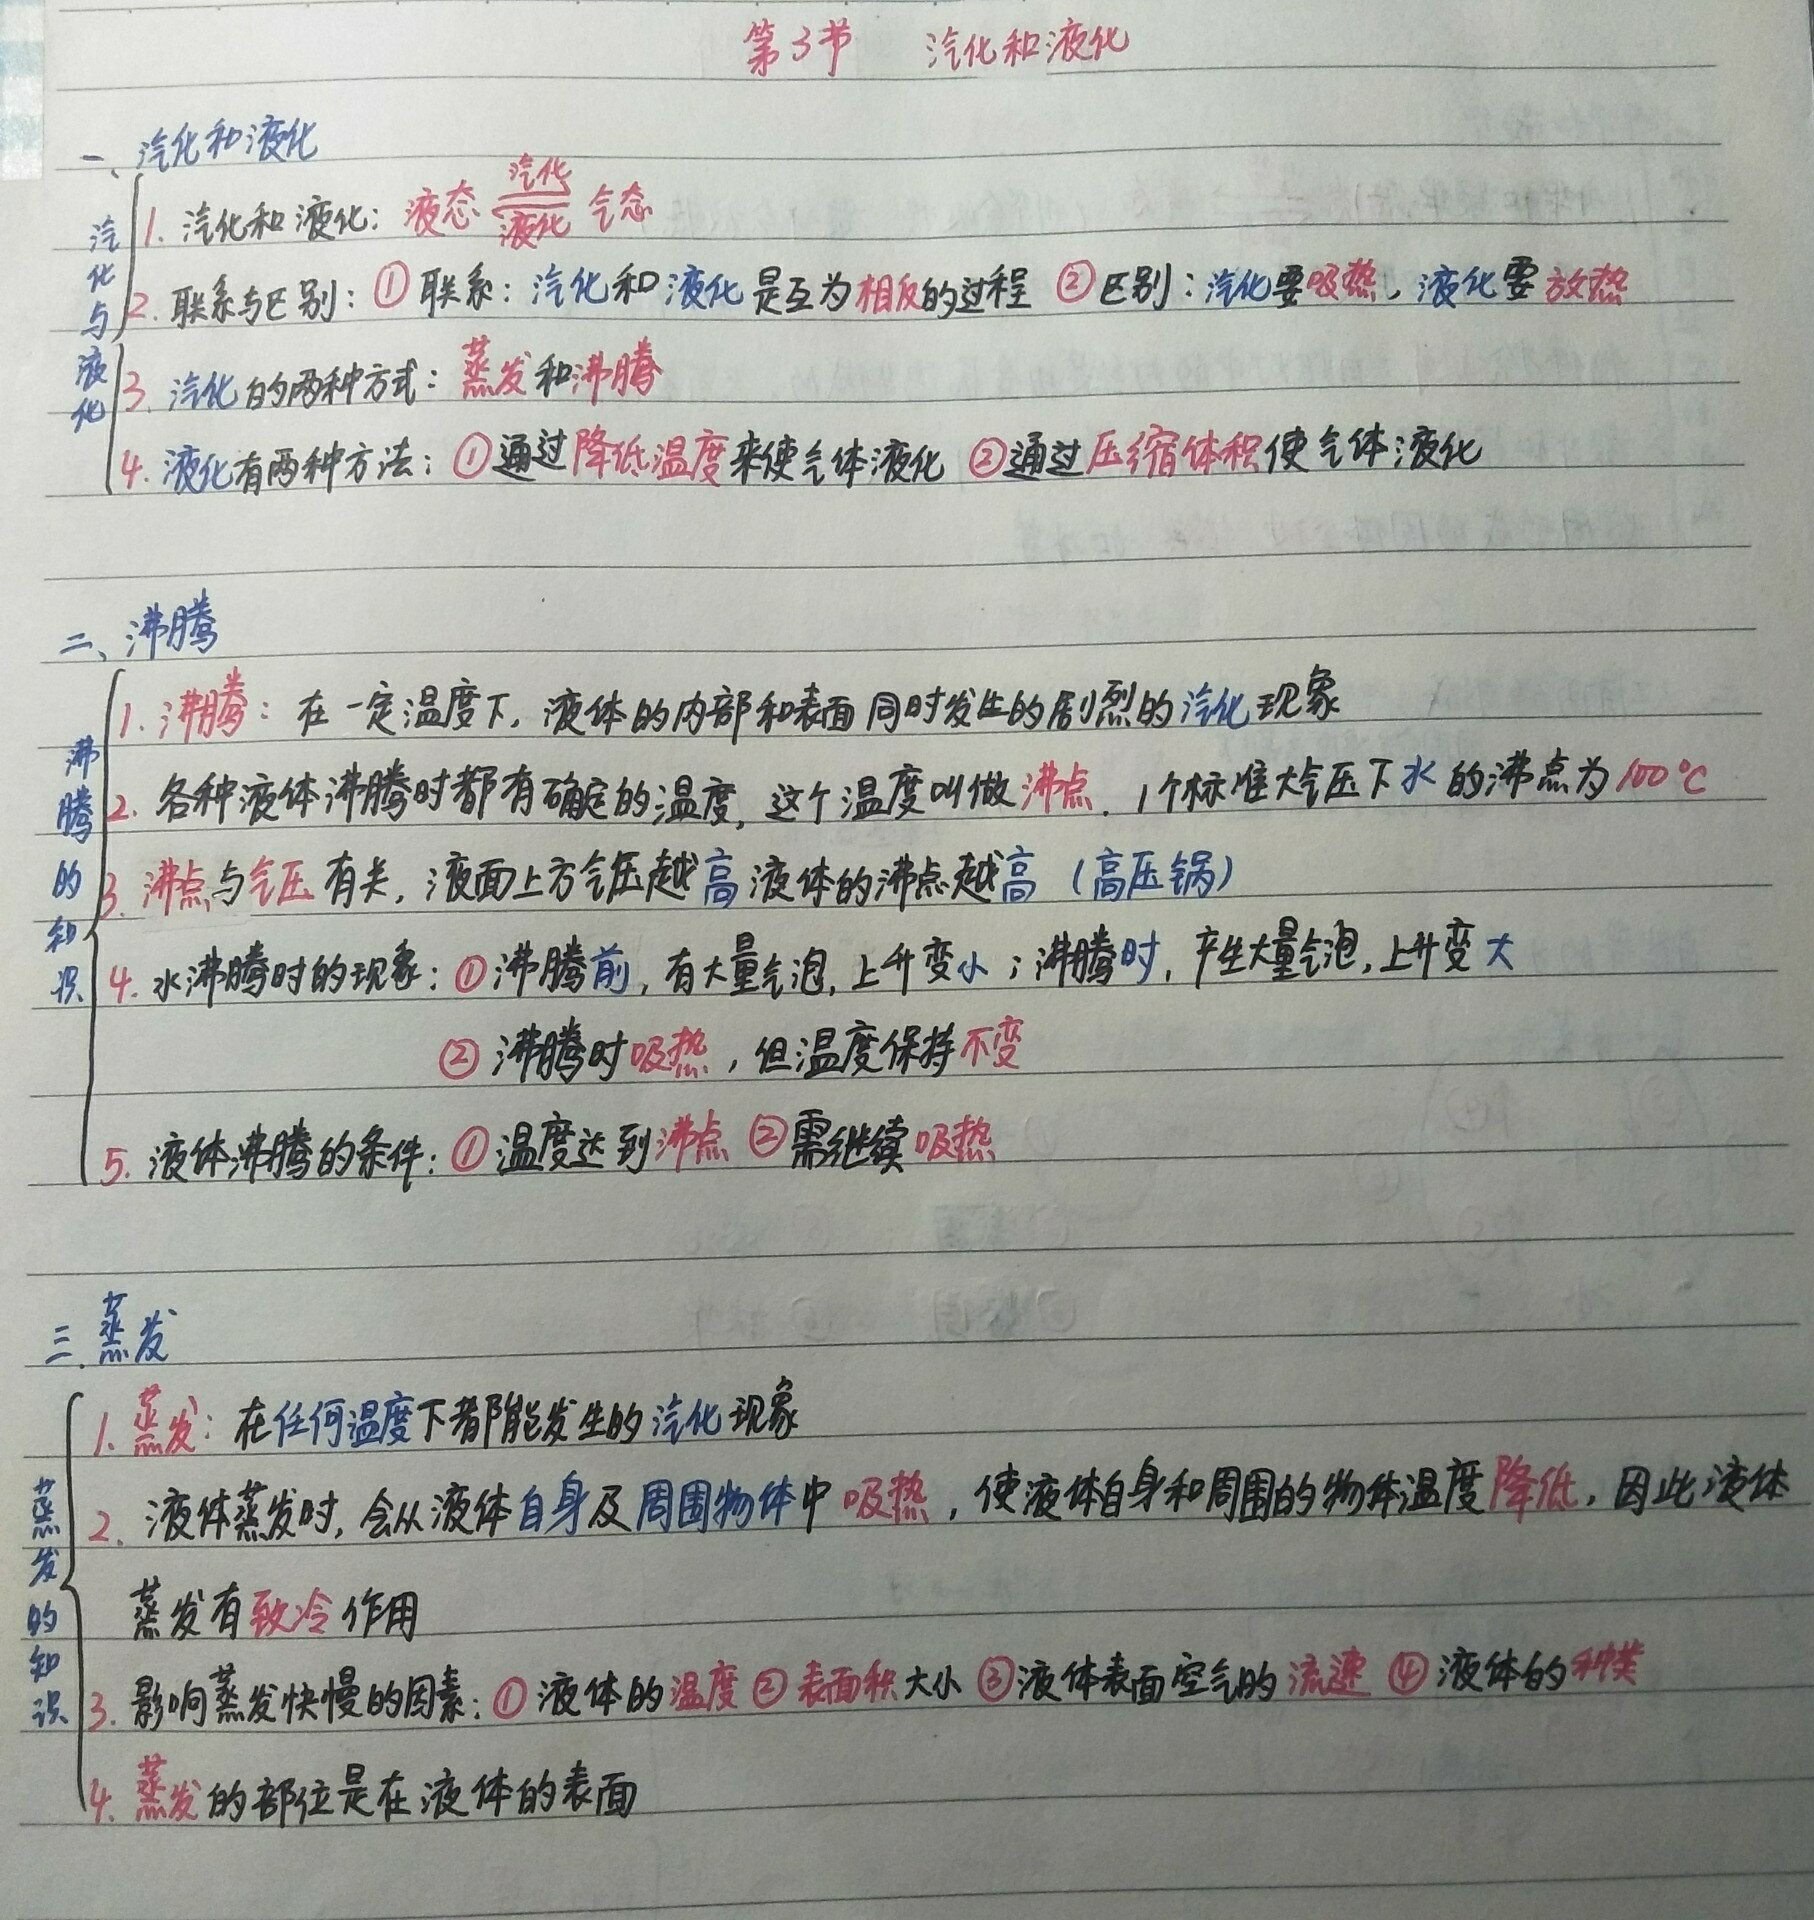 第3节 汽化和液化
一、汽化和液化
汽化与液化
1. 汽化和液化：液态 汽化 液化 气态
2. 联系与区别：①联系：汽化和液化是互为相反的过程 ②区别：汽化要吸热，液化要放热
3. 汽化的两种方式：蒸发和沸腾
4. 液化有两种方法：①通过降低温度来使气体液化 ②通过压缩体积使气体液化
二、沸腾
沸腾的知识
1. 沸腾：在一定温度下，液体的内部和表面同时发生的剧烈的汽化现象
2. 各种液体沸腾时都有确定的温度，这个温度叫做沸点．1个标准大气压下水的沸点为100℃
3. 沸点与气压有关，液面上方气压越高液体的沸点越高（高压锅）
4. 水沸腾时的现象：①沸腾前，有大量气泡，上升变小；沸腾时，产生大量气泡，上升变大
②沸腾时吸热，但温度保持不变
5. 液体沸腾的条件：①温度达到沸点 ②需继续吸热
三、蒸发
蒸发的知识
1. 蒸发：在任何温度下都能发生的汽化现象
2. 液体蒸发时，会从液体自身及周围物体中吸热，使液体自身和周围的物体温度降低，因此液体
蒸发有致冷作用
3. 影响蒸发快慢的因素：①液体的温度 ②表面积大小 ③液体表面空气的流速 ④液体的种类
4. 蒸发的部位是在液体的表面